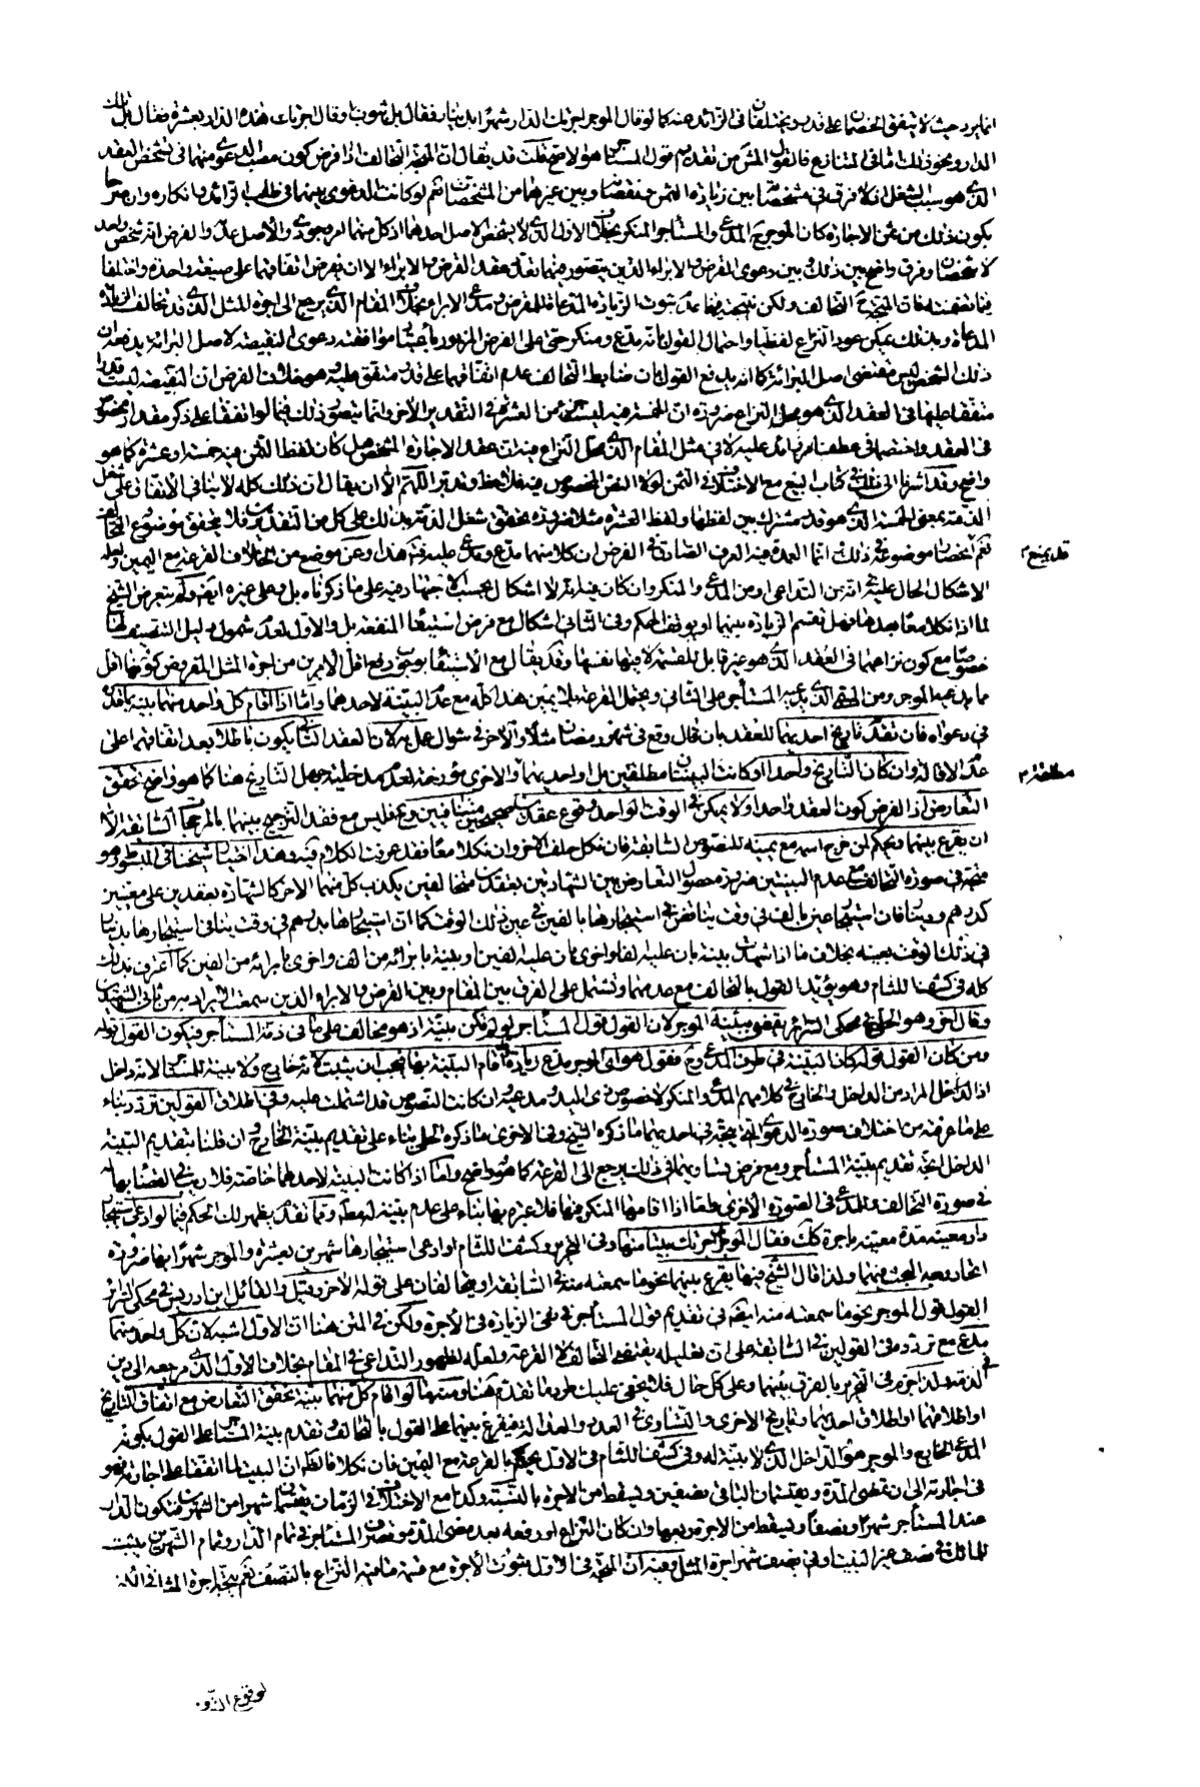 انما يرد حيث لا يتفق الخصمان على قدر ويختلفان في الزائد عنه كما لو قال الموجر اجرتك الدار شهرا بدينار فقال بل بثوب او قال اجرتك هذه الدار بعشرة فقال بل تلك
الدار ونحو ذلك اما في المتنازع فالقول المثمر من تقديم قول المستاجر هو الاصح قلت قد يقال ان المتجه التحالف اذا فرض كون مصب الدعوى منهما في تشخص العقد
الذي هو سبب الشغل اذ لا فرق في مشخصاته بين زيادة الثمن ونقيصته وبين غيرها من المشخصات نعم لو كانت الدعوى بينهما في طلب الزائد وانكاره وان صرحا
بكون ذلك من ثمن الاجارة كان الموجر المدعي والمستاجر المنكر بخلاف الاول الذي لا يشخص الاصل احدهما اذ كل منهما امر وجودي والاصل عدمه والفرض انه شخص واحد
لا شخصان وفرق واضح بين ذلك وبين دعوى القرض والابراء الذين يتصور فيهما تعدد عقد القرض والابراء الا ان يفرض اتفاقهما على صيغة واحدة واختلفا
فيما تضمنته فان المتجه التحالف ولكن نتيجته فيهما عدم ثبوت الزيادة المدعاة للمقرض ومدعي الابراء بخلاف المقام الذي يرجع الى اجرة المثل الذي قد تخالف الزيادة
المدعاة وبذلك يمكن عود النزاع لفظيا واحتمال القول بانه مدع ومنكر حتى على الفرض المزبور باعتبار موافقته دعوى النقيصة لاصل البرائة يدفعه ان
ذلك التشخص ليس مقتضى اصل البرائة كما انه يدفع القول بان ضابط التحالف عدم اتفاقهما على قدر متفق عليه وهو خلاف الفرض ان النقيصة ليست قدرا
متفقا عليها في العقد الذي هو محل النزاع ضرورة ان الخمسة فيه ليست من العشرة في التقدير الاخر وانما يتصور ذلك فيما لو اتفقا على ذكر مقدار مخصوص
في العقد واختصما في عطف امر زائد عليه لا في مثل المقام الذي محل النزاع فيه ان عقد الاجارة المشخص هل كان لفظ الثمن فيه خمسة او عشرة كما هو
واضح وقد اشرنا الى ذلك في كتاب البيع مع الاختلاف في الثمن لولا النص المخصوص فيه فلاحظ وتدبر اللهم الا ان يقال ان ذلك كله لا ينافي الاتفاق على شغل
الذمة بمعنى الخمسة الذي هو قدر مشترك بين لفظها ولفظ العشرة مثلا ضرورة تحقق شغل الذمة بذلك على كل من التقديرين فلا يتحقق موضوع التحالف
نعم انحصار موضوعه في ذلك انما العمدة فيه العرف الصادق في الفرض ان كلا منهما مدع ومدعى عليه فتم هذا وعن موضع من الخلاف القرعة مع اليمين لعله
لاشكال الحال عليه في انه من التداعي او من المدعي والمنكر وان كان فيه انه لا اشكال بحسب الاجتهاد فيه على ما ذكرناه بل وعلى غيره ايضا ولم يتعرض الشيخ
لما اذا نكلا معا بعدها فهل تقسم الزيادة بينهما او يوقف الحكم وفي الثاني اشكال مع فرض استيفاء المنفعة بل والاول لعدم شمول دليل التنصيف لهذا
خصوصا مع كون نزاعهما في العقد الذي هو غير قابل للقسمة لا فيها نفسها وقد يقال مع الاستيفاء بوجوب دفع اقل الامرين من اجرة المثل المفروض كونها اقل
مما يدعيه الموجر ومن المسمى الذي يدعيه المستاجر على الثاني ويحتمل القرعة بلا يمين هذا كله مع عدم البينة لاحدهما واما اذا اقام كل واحد منهما بينة بما قدره
في دعواه فان تقدم تاريخ احديهما للعقد بان قال وقع في شهر رمضان مثلا والاخر في شوال عمل به لان العقد الثاني يكون باطلا بعد اتفاقهما على
عدم الاقالة وان كان التاريخ واحدا او كانت البينتان مطلقتين او واحدة منهما والاخرى مؤرخة لعدم مدخلية جهل التاريخ هنا كما هو واضح تحقق
التعارض اذ الفرض كون العقد واحدا ولا يمكن في الوقت الواحد وقوع عقدين صحيحين متنافيين وحينئذ ليس مع فقد الترجيح بينهما بالمرجحات السابقة الا
ان يقرع بينهما ويحكم لمن خرج اسمه مع يمينه للنصوص السابقة فان نكل حلف الاخر وان نكلا معا فقد عرفت الكلام فيه وهذا اختيار شيخنا في المبسوط وهو
متجه في صورة التحالف مع عدم البينتين ضرورة حصول التعارض بين الشهادتين بعقدين متخالفين يكذب كل منهما الاخر كالشهادة بعقدين على معنيين
كدرهم ودينار فان استيجار عين بالف في وقت يناقض استيجارها بالفين في عين ذلك الوقت كما ان استيجارها بدرهم في وقت ينافي استيجارها بدينار
في ذلك الوقت بعينه بخلاف ما اذا شهدت بينة بان عليه الفا واخرى بان عليه الفين او بينة بابرائه من الف واخرى بابرائه من الفين كما اعترف بذلك
كله في كشف اللثام وهو يؤيد القول بالتحالف مع عدمهما وتشتمل على الفرق بين المقام وبين القرض والابراء الذين سمعت الايراد بهما من ثاني الشهيدين
وقال اخر وهو الحلي في محكي السرائر يقضى ببينة الموجر لان القول قول المستاجر لو لم تكن بينة اذ هو يخالف على ما في ذمة المستاجر فيكون القول قوله
ومن كان القول قوله كان البينة في طرف المدعي وحينئذ فنقول هو اي الموجر مدع زيادة وقد اقام البينة بها فيجب ان يثبت لانه خارج ولا بينة للمستاجر لانه داخل
اذ الداخل المراد من الداخل والخارج في كلامهم المدعي والمنكر لا خصوص ذي اليد ومدعيه وان كانت النصوص قد اشتملت عليه وفي اطلاق القولين تردد بناء
على ما عرفته من اختلاف صورة الدعوى التي يتجه في احديهما ما ذكره الشيخ وفي الاخرى ما ذكره الحلي بناء على تقديم بينة الخارج وان قلنا بتقديم البينة
الداخل اتجه تقديم بينة المستاجر ومع فرض تساويهما في ذلك يرجع الى القرعة كما هو واضح واما اذا كانت البينة لاحدهما خاصة فلا ريب في القضاء بها
في صورة التحالف وللمدعي في الصورة الاخرى قطعا اذا اقامها المنكر فيها فلا عبرة بها بناء على عدم بينة له فقط ومما تقدم يظهر لك الحكم فيما لو ادعى استيجار
دار معينة مدة معينة باجرة كذلك فقال الموجر بل اجرتك بيتا منها وفي التحرير وكشف اللثام او ادعى استيجارها شهرين بعشرة والموجر شهرا بها ضرورة
اتحاد وجه البحث فيهما ولذا قال الشيخ فيها يقرع بينهما بنحو ما سمعته منه في السابقة او يتحالفان على قوله الاخر وقيل والقائل ابن ادريس في محكي السرائر
القول قول الموجر بنحو ما سمعته منه ايضا في تقديم قول المستاجر في نفي الزيادة في الاجرة ولكن في المتن هنا ان الاول اشبه لان كل واحد منهما
مدع مع تردده في القولين في السابقة على ان تعليله يقتضي التحالف لا القرعة ولعله لظهور التداعي في المقام بخلاف الاول الذي مرجعه الى دين
في الذمة ولذا جزم في التحرير بالفرق بينهما وعلى كل حال فلا يخفى عليك طريق ما تقدم هنا ومنهما لو اقام كل منهما بينة تحقق التعارض مع اتفاق التاريخ
او اطلاقهما او اطلاق احديهما وتاريخ الاخرى والتساوي في العدد والعدالة فيقرع بينهما على القول بالتحالف وتقدم بينة المستاجر على القول بكونه
المدعي الخارج والموجر هو الداخل الذي لا بينة له وفي كشف اللثام في الاول يحكم بالقرعة مع اليمين فان نكلا فالظاهر ان البيت لما اتفقا على اجارته فهو
في اجارته الى ان تمضي المدة ويقتسمان الباقي نصفين ويسقط من الاجرة بالنسبة وكذا مع الاختلاف في الزمان يقتسمان شهرا من الشهرين فتكون الدار
عند المستاجر شهرا ونصفا ويسقط من الاجرة ربعها وان كان النزاع او رفعه بعد مضي المدة وتصرف المستاجر في تمام الدار وتمام الشهرين يثبت
للمالك في نصف غير البيت او في نصف شهر اجرة المثل وفيه ان المتجه في الاول ثبوت الاجرة مع قسمة ما فيه النزاع بالتنصيف نعم يتجه اجرة المثل في الثاني
قد يمنع ٢
مطلقة ٢
لوقوع التو